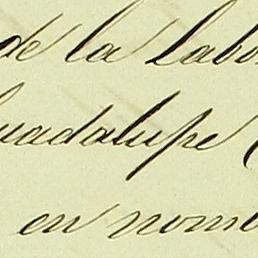 de la labo
uadalupe (
en nom